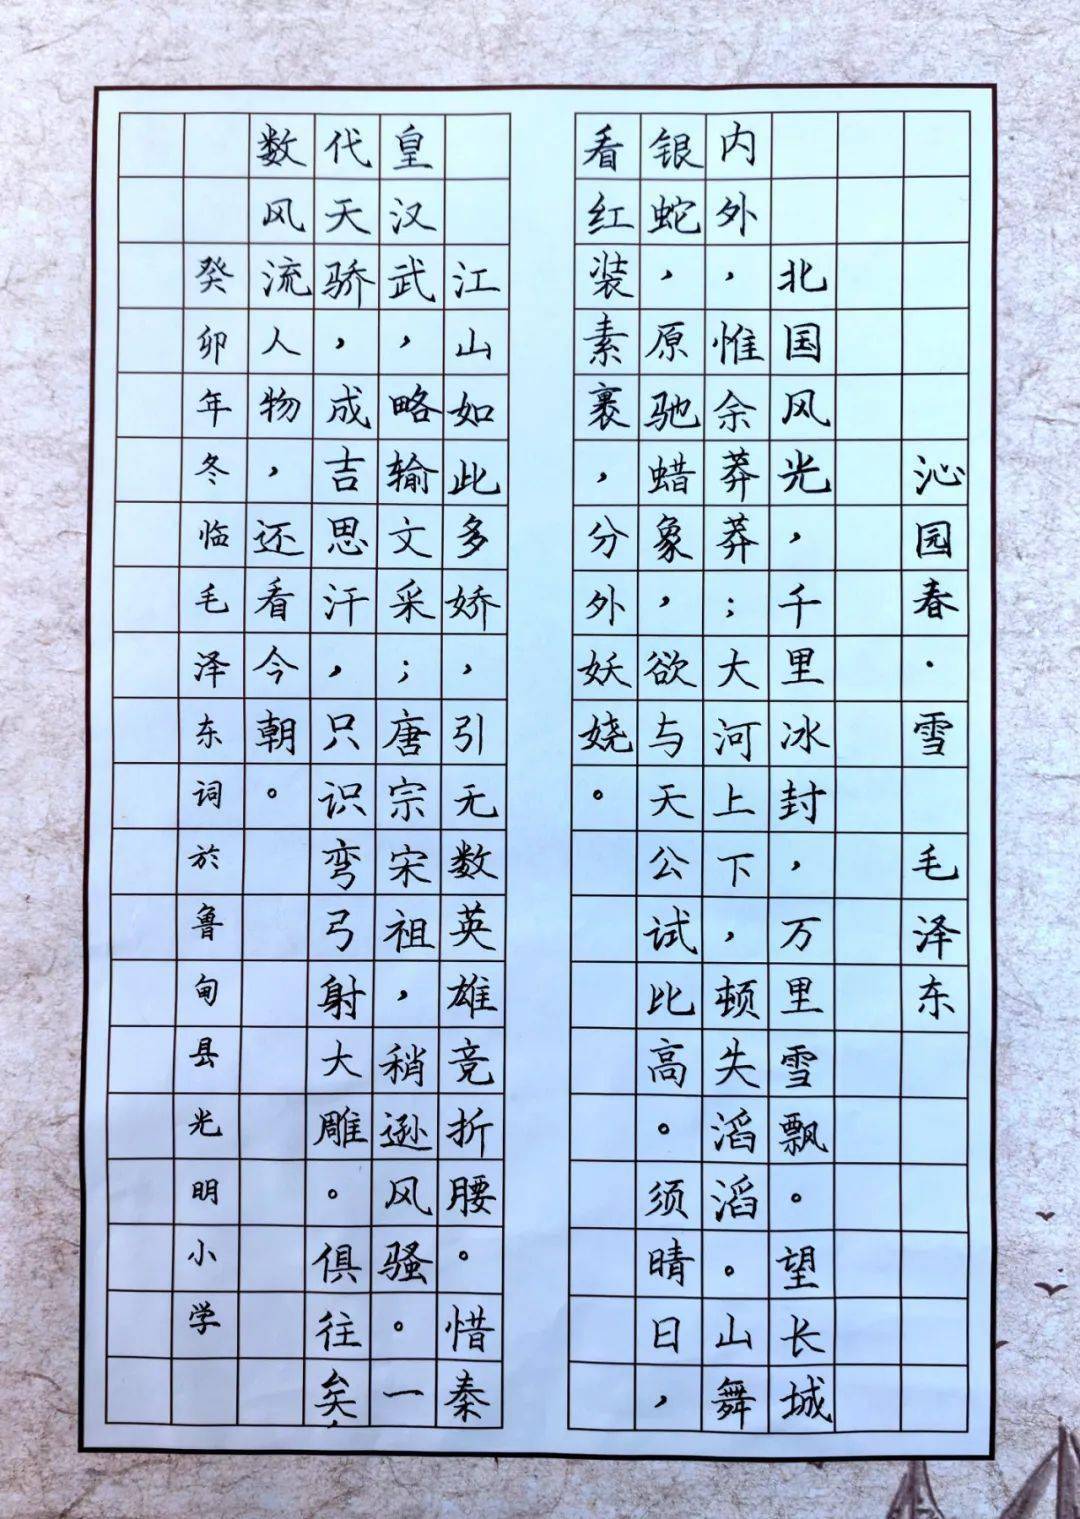 沁园春·雪 毛泽东
北国风光，千里冰封，万里雪飘。望长城
内外，惟余莽莽；大河上下，顿失滔滔。山舞
银蛇，原驰蜡象，欲与天公试比高。须晴日，
看红装素裹，分外妖娆。
江山如此多娇，引无数英雄竞折腰。惜秦
皇汉武，略输文采；唐宗宋祖，稍逊风骚。一
代天骄，成吉思汗，只识弯弓射大雕。俱往矣，
数风流人物，还看今朝。
癸卯年冬临毛泽东词於鲁甸县光明小学